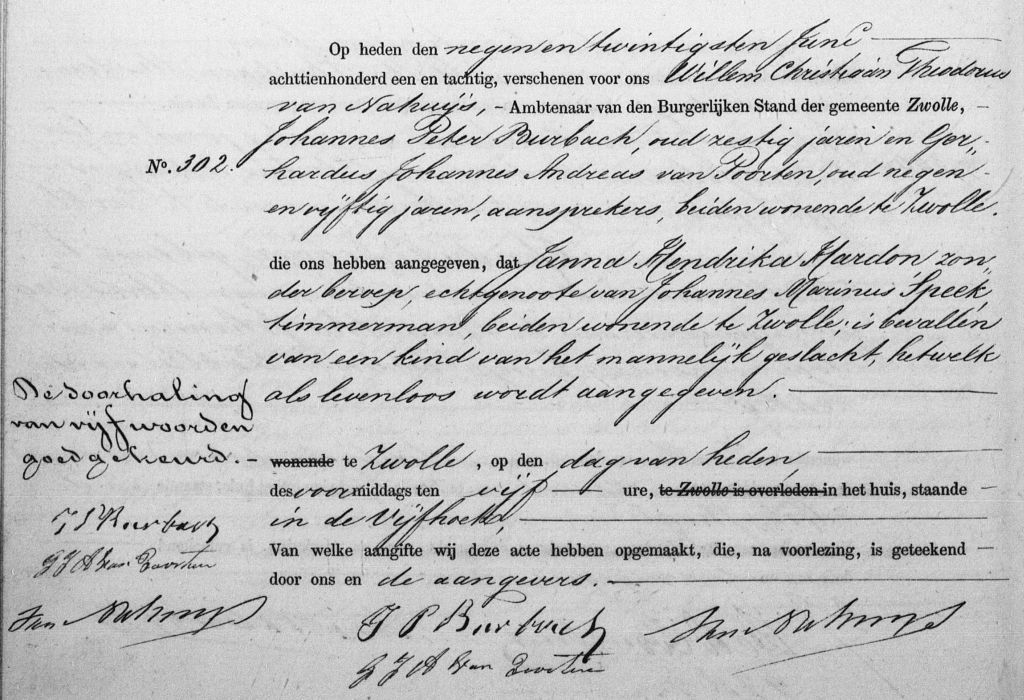 Op heden den negen en twintigsten Juni
achttienhonderd een en tachtig, verschenen voor ons Willem Christiaan Theodorus
van Nahuijs, - Ambtenaar van den Burgerlijken Stand der gemeente Zwolle, -
Johannes Peter Burbach, oud zestig jaren en Ger„
No. 302.
hardus Johannes Andreas van Poorten, oud negen
en vijftig jaren, aansprekers, beiden wonende te Zwolle.
die ons hebben aangegeven, dat Janna Hendrika Hardon, zon„
der beroep, echtgenoote van Johannes Marinus Speek,
timmerman, beiden wonende te Zwolle, is bevallen
van een kind van het mannelijk geslacht, hetwelk
als levenloos wordt aangegeven.
De doorhaling
van vijf woorden
goedgekeurd. -
wonende te Zwolle, op den dag van heden
des voormiddags ten vijf ure, te Zwolle is overleden in het huis, staande
in de Vijfhoek,
J P Burbach
G J A van Poorten
Van Nahuijs
Van welke aangifte wij deze acte hebben opgemaakt, die, na voorlezing, is geteekend
door ons en de aangevers.
J P Burbach
G J A van Poorten
Van Nahuijs